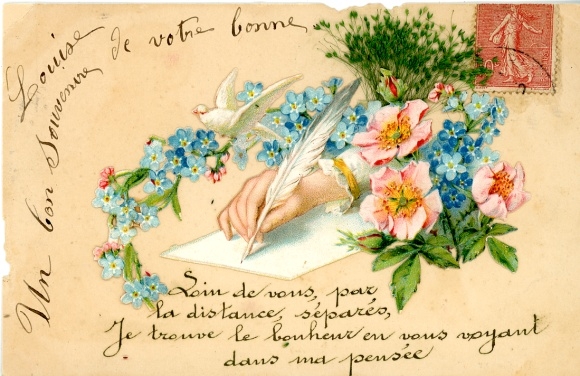 Un bon souvenire de votre bonne
Louise
Loin de vous, par
la distance, séparés,
Je trouve le bonheur en vous voyant
dans ma pensée